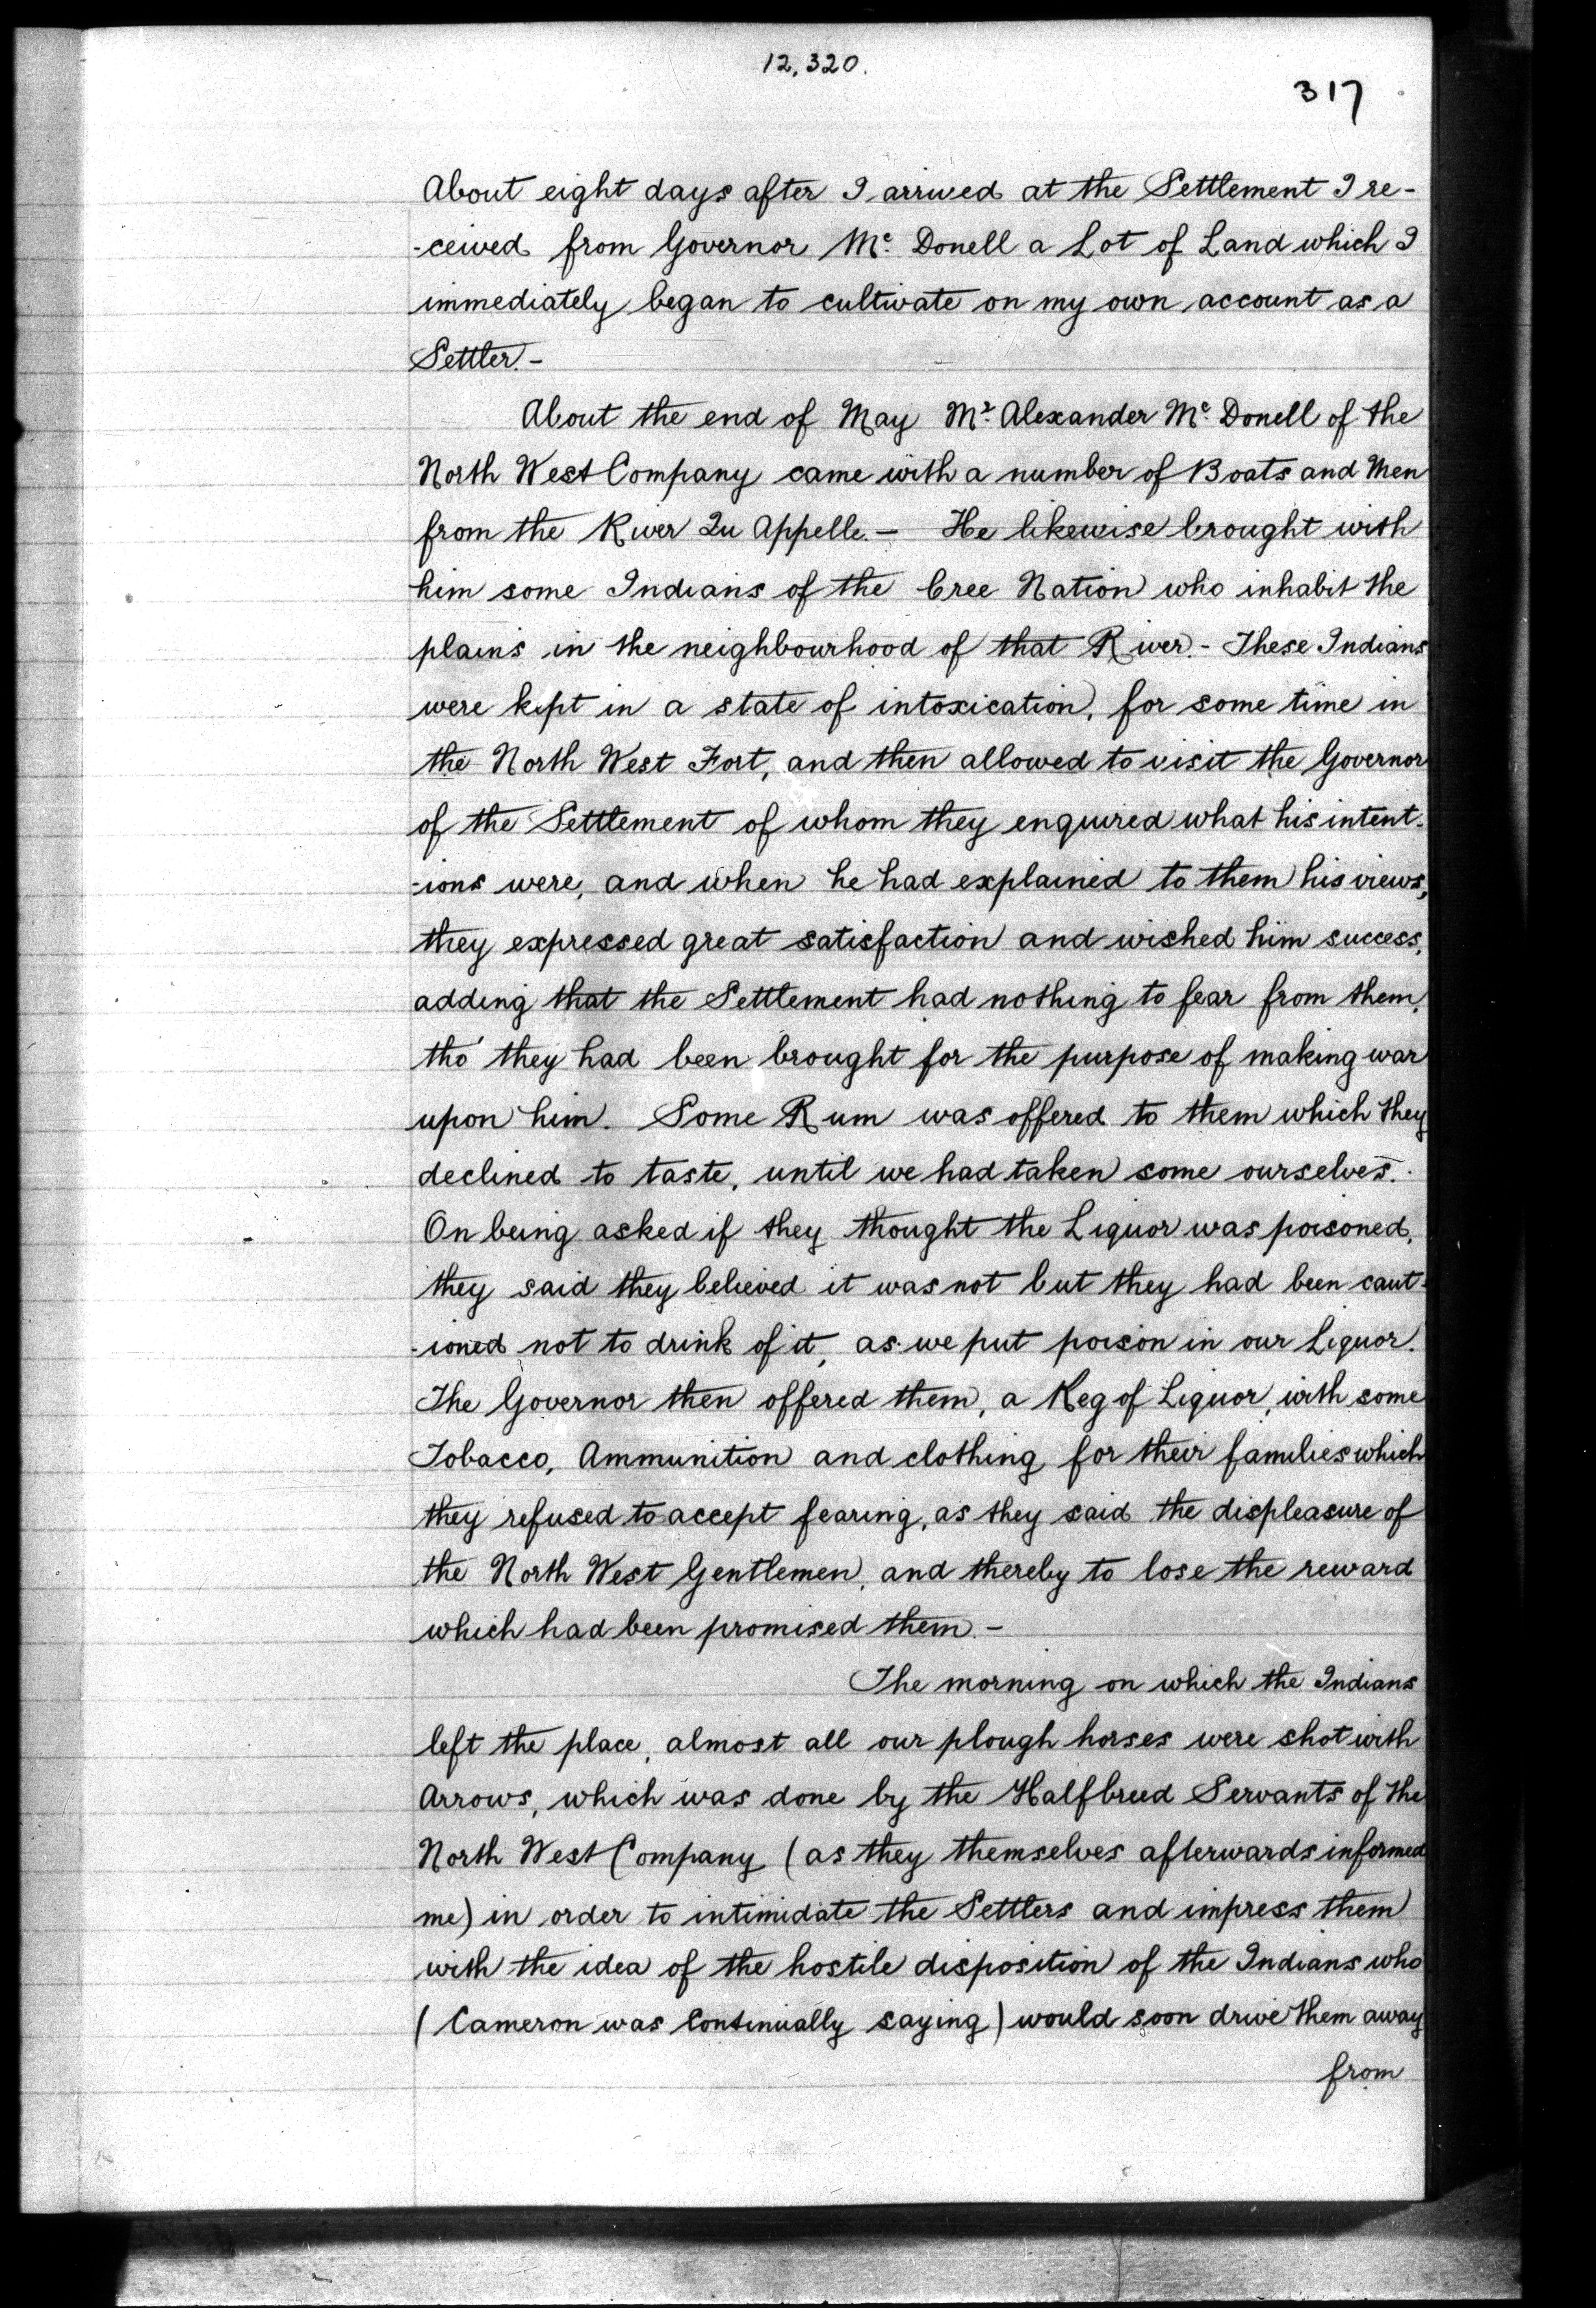 12,320.
317
About eight days after I arrived at the Settlement I re-
-ceived from Governor Mc. Donell a Lot of Land which I
immediately began to cultivate on my own account as a
Settler.-
About the end of May Mr. Alexander Mc. Donell of the
North West Company came with a number of Boats and Men
from the River Qu Appelle.- He likewise brought with
him some Indians of the Cree Nation who inhabit the
plains in the neighbourhood of that River.- These Indians
were kept in a state of intoxication, for some time in
the North West Fort, and then allowed to visit the Governor
of the Settlement of whom they enquired what his intent-
-ions were, and when he had explained to them his views,
they expressed great satisfaction and wished him success,
adding that the Settlement had nothing to fear from them,
tho' they had been brought for the purpose of making war
upon him. Some Rum was offered to them which they
declined to taste, until we had taken some ourselves.
On being asked if they thought the Liquor was poisoned,
they said they believed it was not but they had been caut-
-ioned not to drink of it, as we put poison in our Liquor.
The Governor then offered them, a Keg of Liquor, with some
Tobacco, Ammunition and clothing for their families which
they refused to accept fearing, as they said the displeasure of
the North West Gentlemen, and thereby to lose the reward
which had been promised them.-
The morning on which the Indians
left the place, almost all our plough horses were shot with
Arrows, which was done by the Halfbreed Servants of the
North West Company (as they themselves afterwards informed
me) in order to intimidate the Settlers and impress them
with the idea of the hostile disposition of the Indians who
(Cameron was Continually saying) would soon drive them away
from